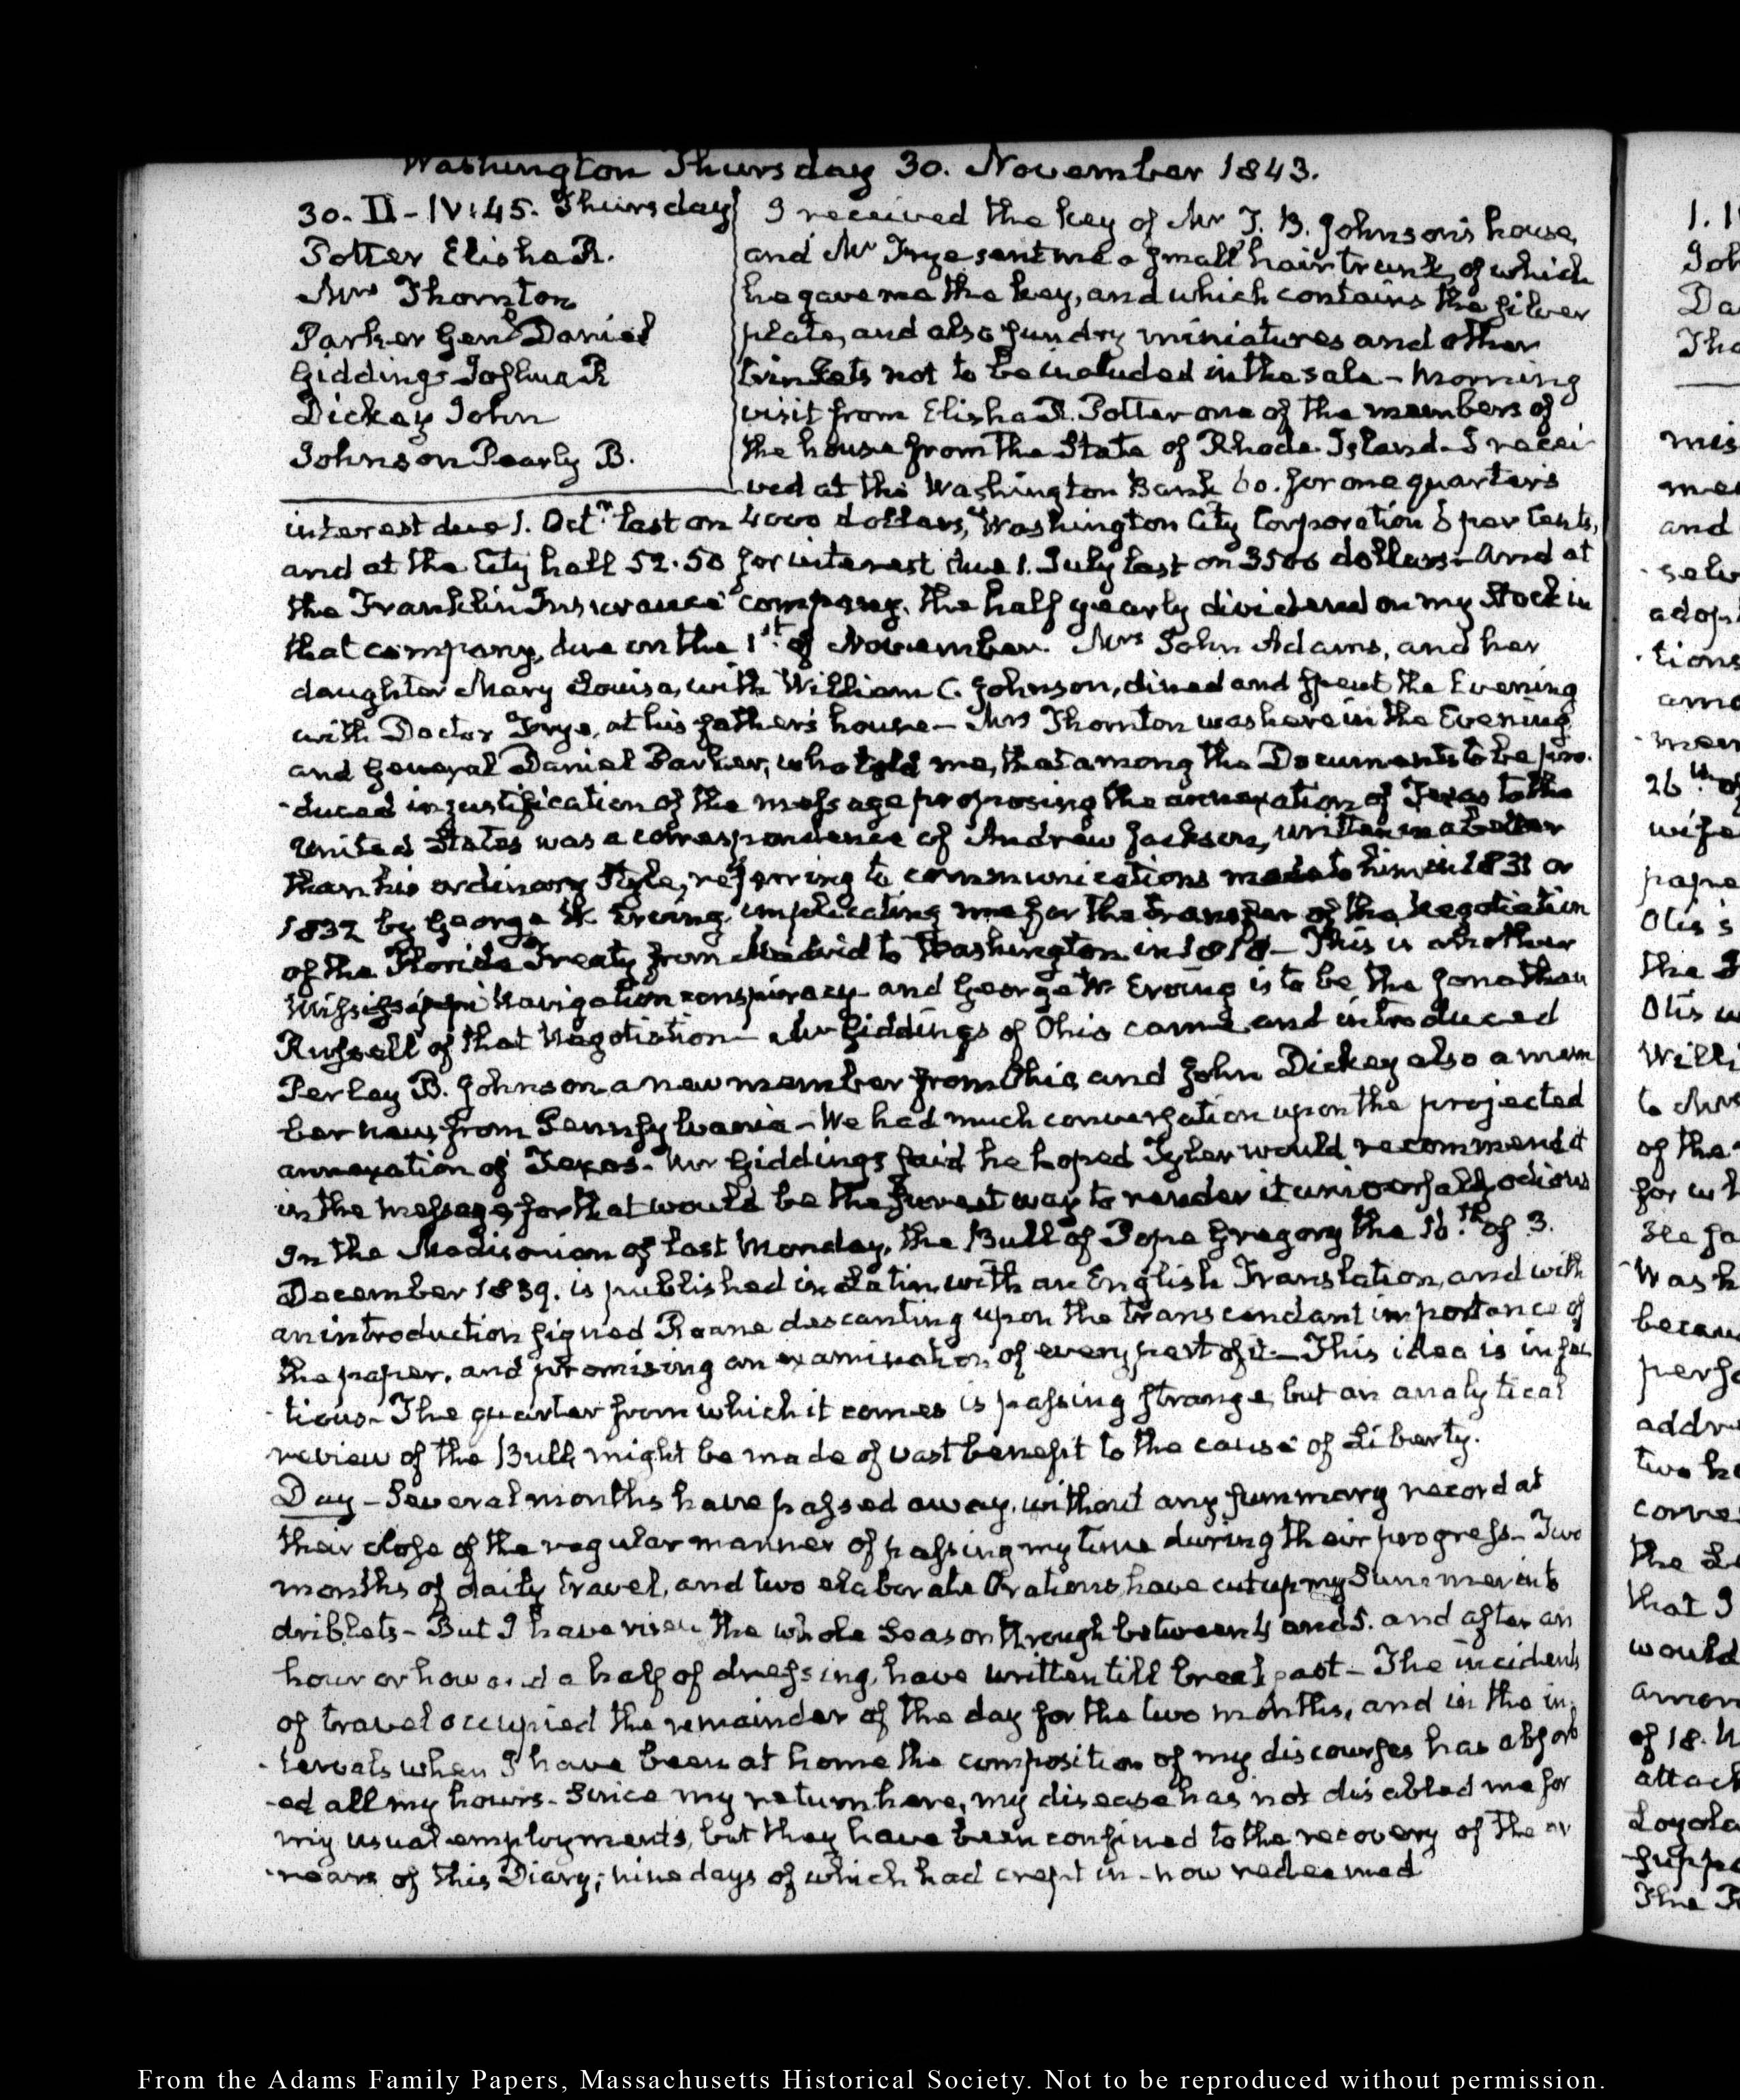 Washington Thursday 30. November 1843.
30. II - IV:45. Thursday
Potter Elisha R.
Mrs Thornton
Parker Genl Daniel
Giddings Joshua R
Dickey John
Johnson Pearly B.
I received the key of Mr T. B. Johnson's house,
and Mr Frye sent me a small hair trunk, of which
he gave me the key, and which contains the silver
plate, and also sundry miniatures and other
trinkets not to be included in the sale - Morning
visit from Elisha R. Potter one of the members of
the house from the State of Rhode-Island - I recei
ved at the Washington Bank 60. for one quarter's
interest due 1. Octr last on 4000 dollars, Washington City Corporation 6 per Cents,
and at the City hall 52.50 for interest due 1. July last on 3500 dollars - And at
the Franklin Insurance company, the half yearly dividend on my Stock in
that company, due on the 1st of November. Mrs John Adams, and her
daughter Mary Louisa, with William C. Johnson, dined and spent the Evening
with Doctor Frye, at his father's house - Mrs Thornton was here in the Evening
and General Daniel Parker, who told me, that among the Documents to be pro-
-duced in justification of the message proposing the annexation of Texas to the
United States was a correspondence of Andrew Jackson, written in a better
than his ordinary Style, referring to communications made to him in 1831 or
1832 by George W. Erving, implicating me for the transfer of the Negotiation
of the Florida Treaty from Madrid to Washington in 1818 - This is another
Mississippi Navigation conspiracy - and George W. Erving is to be the Jonathan
Russell of that Negotiation - Mr Giddings of Ohio came and introduced
Perley B. Johnson a new member from Ohio, and John Dickey also a mem
ber new from Pennsylvania - We had much conversation upon the projected
annexation of Texas - Mr Giddings said he hoped Tyler would recommend it
in the Message, for that would be the surest way to render it universally odious
In the Madisonian of last Monday, the Bull of Pope Gregory the 16.th of 3.
December 1839. is published in Latin, with an English Translation, and with
an introduction signed Roane descanting upon the transcendant importance of
the paper, and promising an examination of every part of it - This idea is infec
-tious - The quarter from which it comes is passing strange, but an analytical
review of the Bull, might be made of vast benefit to the cause of Liberty.
Day - Several months have passed away, without any summary record at
their close of the regular manner of passing my time during their progress - Two
months of daily travel, and two elaborate Orations, have cut up my Summer into
driblets - But I have risen the whole Season through between 4 and 5. and after an
hour or hour and a half of dressing, have written till breakfast - The incidents
of travel occupied the remainder of the day for the two months, and in the in-
-tervals when I have been at home the composition of my discourses has absorb
-ed all my hours - Since my return here, my disease has not disabled me for
my usual employments, but they have been confined to the recovery of the ar
-rears of this Diary; nine days of which had crept in - now redeemed
1. 1
Joh
Da
Tho
mis
me
and
selv
adop
-tions
amo
-mem
26th of
wife
pape
Otis's
the
Otis w
Willi
to Mrs
of the
for wh
see fa
Wash
becau
perfo
addre
two ho
corre
the Le
that I
would
amon
of 18.
attach
Loyola
suppo
The
From the Adams Family Papers, Massachusetts Historical Society. Not to be reproduced without permission.